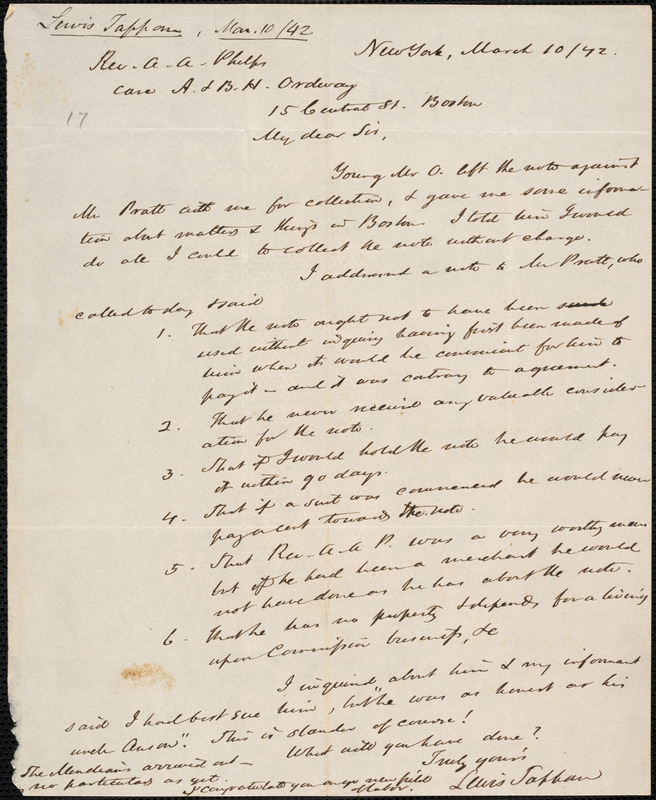 Lewis Tappan, Mar. 10/42
New York, March 10/42.
Rev. A. A. Phelps
Care A. & B. H. Ordway
15 Central St. Boston
17
My dear Sir,
Young Mr O. left the note against
Mr Pratt with me for collection, & gave me some informa-
tion abut matters & things in Boston. I told him I would
do all I could to collect the note without charge.
I addressed a note to Mr Pratt, who
called to day & said
1. That the note ought not to have been
used without inquiry having first been made of
him when it would be convenient for him to
pay it - and it was contrary to agreement.
2. That he never received any valuable consider-
ation for the note.
3. That if I would hold the note he would pay
it within 90 days.
4. That if a suit was commenced he would never
pay a cent towards the note.
5. That Rev. A. A. P. was a very worthy man
but if he had been a merchant he would
not have done as he has about the note.
6. That he has no property & depends for a living
upon Commission business, &c
I inquired about him & my informant
said I had best sue him, but "he was as honest as his
uncle Anson". This is slander of course!
What will you have done?
Truly yours
Lewis Tappan
The Mendians arrived out -
no particulars as yet.
I congratulate you on yr new field
of labor.